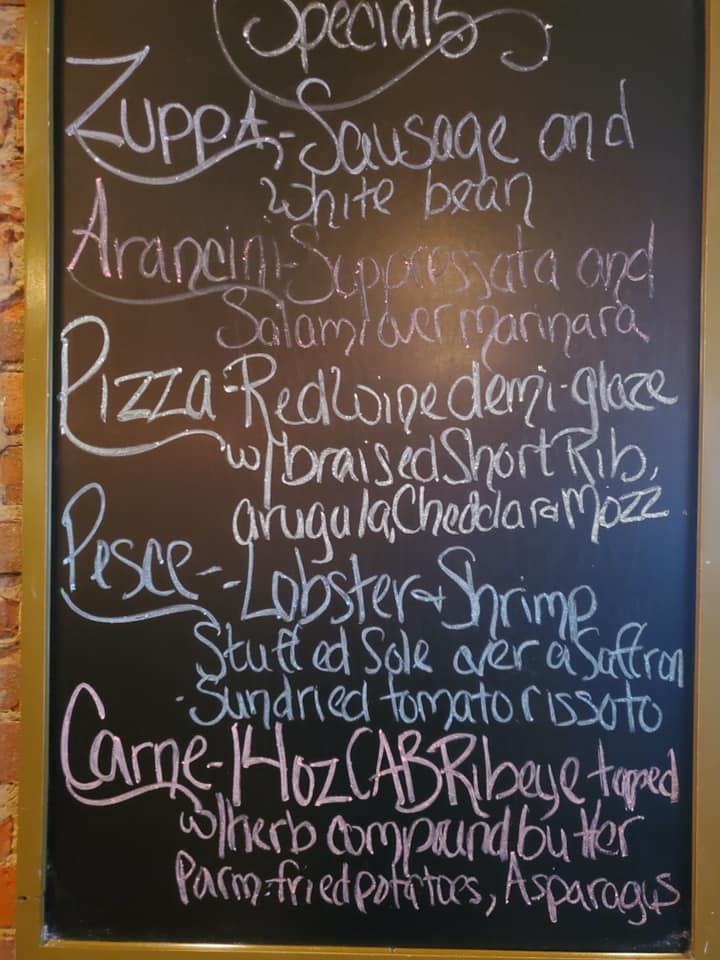 Specials
Zuppa - Sausage and
white bean
Arancini - Suppressata and
Salami over marinara
Pizza - Red Wine demi-glaze
w/ braised Short Rib,
arugula, Cheddar & Mozz
Pesce - Lobster & Shrimp
Stuffed Sole over a Saffron
- Sundried tomato rissoto
Carne - 14oz CAB Ribeye topped
w/ herb compound butter
Parm-fried potatoes, Asparagus